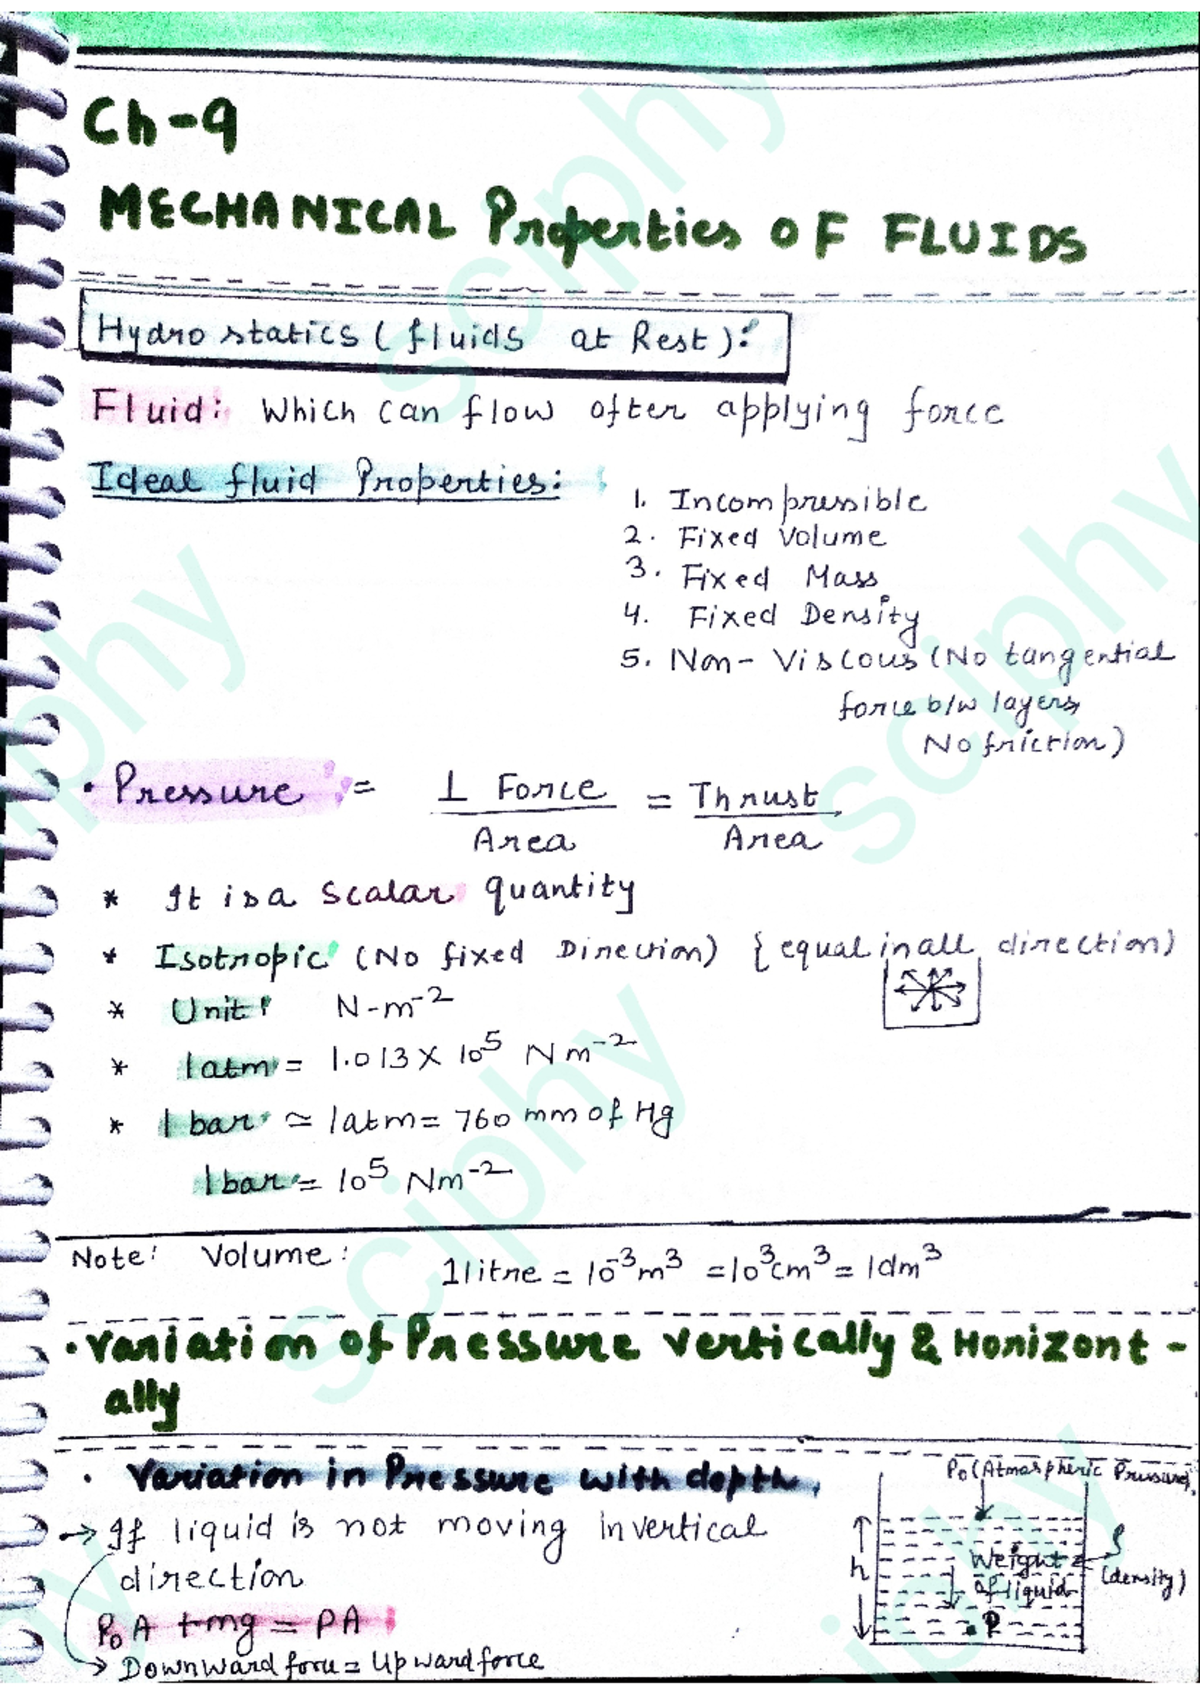 Ch-9
MECHANICAL Properties OF FLUIDS
Hydro statics ( fluids at Rest ):
Fluid: Which can flow ofter applying force
Ideal fluid Properties:
1. Incompressible
2. Fixed Volume
3. Fixed Mass
4. Fixed Density
5. Non-Viscous (No tangential
force b/w layers,
No friction)
• Pressure = ⊥ Force / Area = Thrust / Area
* It is a Scalar quantity
* Isotropic (No fixed Direction) { equal in all direction)
* Unit: N-m⁻²
* 1atm = 1.013 X 10⁵ Nm⁻²
* 1 bar ≃ 1atm = 760 mm of Hg
1bar = 10⁵ Nm⁻²
Note: Volume: 1litre = 10⁻³m³ = 10³cm³ = 1dm³
• Variation of Pressure vertically & Horizont-
ally
• Variation in Pressure with depth,
P₀ (Atmospheric Pressure)
→ If liquid is not moving in vertical
direction
h
Weight
of liquid
ρ
(density)
P
P₀A + mg = PA
→ Downward force = Upward force
sciphy
sciphy
sciphy
sciphy
sciphy